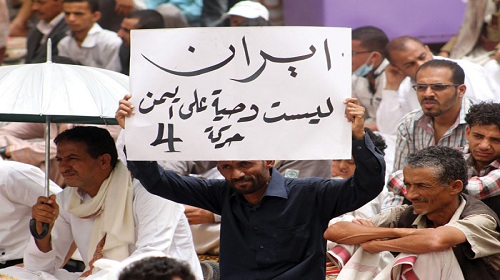 ايران
ليست وصية على اليمن
حركة 4